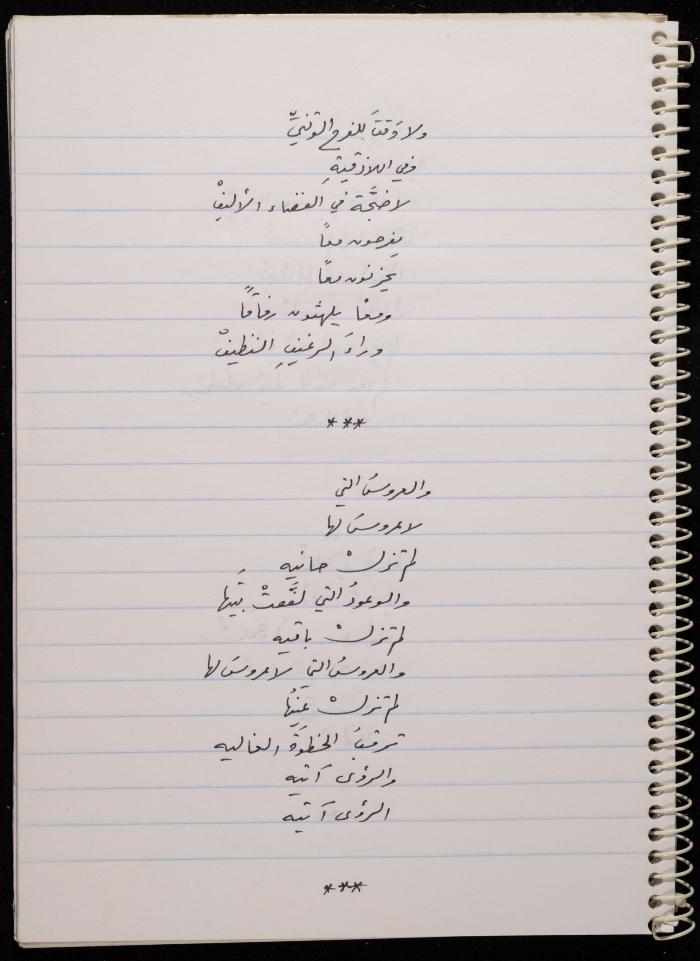 ولا وَقتَ للفرح الوثنيِّ
وفي اللاذقيةِ
لا ضجَّة في الفضاء الأليفْ
يفرحون معاً
يحزنون معاً
ومعاً يلهثون رفاقاً
وراءَ الرغيفِ النظيفْ
***
والعروسُ التي
لا عروسَ لها
لم تزلْ حانيه
والوعودُ التي لفَّعتْ بَيتَها
لم تزلْ باقيه
والعروسُ التي لا عروسَ لها
لم تزلْ عينُها
ترقبُ الخطوَةَ الغاليه
والرؤى آتيه
الرؤى آتيه
***